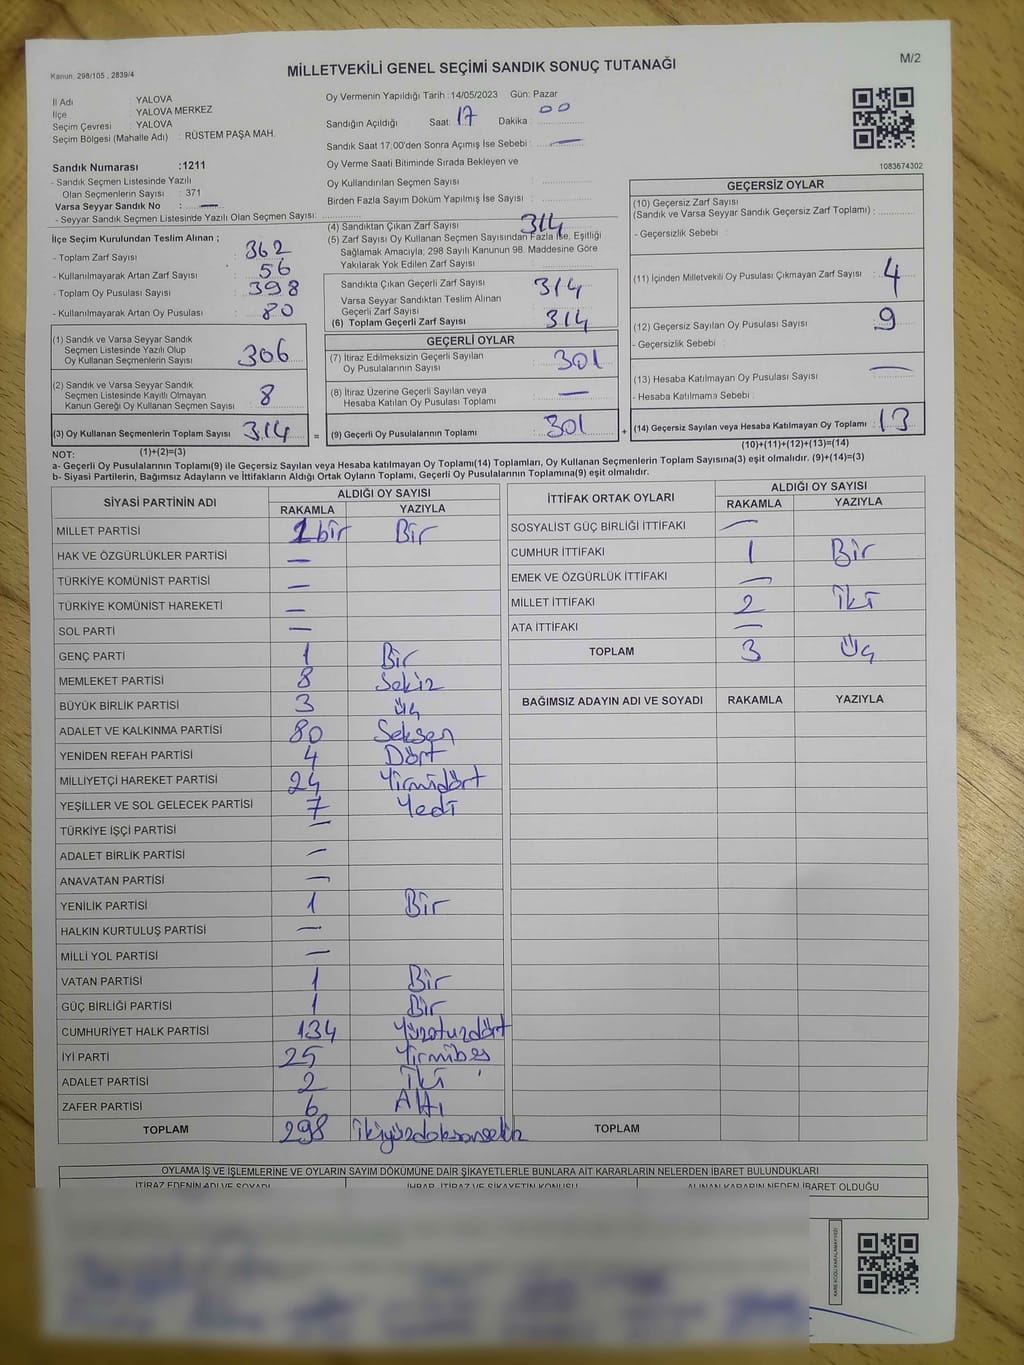 M/2
Kanun. 298/105 , 2839/4
MİLLETVEKİLİ GENEL SEÇİMİ SANDIK SONUÇ TUTANAĞI
İl Adı : YALOVA
İlçe : YALOVA MERKEZ
Seçim Çevresi : YALOVA
Seçim Bölgesi (Mahalle Adı) : RÜSTEM PAŞA MAH.
Sandık Numarası :1211
- Sandık Seçmen Listesinde Yazılı
Olan Seçmenlerin Sayısı : 371
Varsa Seyyar Sandık No : —
- Seyyar Sandık Seçmen Listesinde Yazılı Olan Seçmen Sayısı:
Oy Vermenin Yapıldığı Tarih :14/05/2023 Gün: Pazar
Sandığın Açıldığı Saat: 17 Dakika : 00
Sandık Saat 17:00'den Sonra Açımış İse Sebebi : —
Oy Verme Saati Bitiminde Sırada Bekleyen ve
Oy Kullandırılan Seçmen Sayısı :
Birden Fazla Sayım Döküm Yapılmış İse Sayısı :
1083674302
İlçe Seçim Kurulundan Teslim Alınan ;
- Toplam Zarf Sayısı : 362
- Kullanılmayarak Artan Zarf Sayısı : 56
- Toplam Oy Pusulası Sayısı : 398
- Kullanılmayarak Artan Oy Pusulası : 80
(1) Sandık ve Varsa Seyyar Sandık
Seçmen Listesinde Yazılı Olup
Oy Kullanan Seçmenlerin Sayısı : 306
(2) Sandık ve Varsa Seyyar Sandık
Seçmen Listesinde Kayıtlı Olmayan
Kanun Gereği Oy Kullanan Seçmen Sayısı : 8
(3) Oy Kullanan Seçmenlerin Toplam Sayısı : 314
(1)+(2)=(3)
(4) Sandıktan Çıkan Zarf Sayısı : 314
(5) Zarf Sayısı Oy Kullanan Seçmen Sayısından Fazla İse, Eşitliği
Sağlamak Amacıyla, 298 Sayılı Kanunun 98. Maddesine Göre
Yakılarak Yok Edilen Zarf Sayısı :
Sandıkta Çıkan Geçerli Zarf Sayısı : 314
Varsa Seyyar Sandıktan Teslim Alınan
Geçerli Zarf Sayısı :
(6) Toplam Geçerli Zarf Sayısı : 314
GEÇERLİ OYLAR
(7) İtiraz Edilmeksizin Geçerli Sayılan
Oy Pusulalarının Sayısı : 301
(8) İtiraz Üzerine Geçerli Sayılan veya
Hesaba Katılan Oy Pusulası Toplamı : —
= (9) Geçerli Oy Pusulalarının Toplamı : 301 +
GEÇERSİZ OYLAR
(10) Geçersiz Zarf Sayısı
(Sandık ve Varsa Seyyar Sandık Geçersiz Zarf Toplamı) :
- Geçersizlik Sebebi :
(11) İçinden Milletvekili Oy Pusulası Çıkmayan Zarf Sayısı : 4
(12) Geçersiz Sayılan Oy Pusulası Sayısı : 9
- Geçersizlik Sebebi :
(13) Hesaba Katılmayan Oy Pusulası Sayısı : —
- Hesaba Katılmama Sebebi :
(14) Geçersiz Sayılan veya Hesaba Katılmayan Oy Toplamı : 13
(10)+(11)+(12)+(13)=(14)
NOT:
a- Geçerli Oy Pusulalarının Toplamı(9) ile Geçersiz Sayılan veya Hesaba katılmayan Oy Toplamı(14) Toplamları, Oy Kullanan Seçmenlerin Toplam Sayısına(3) eşit olmalıdır. (9)+(14)=(3)
b- Siyasi Partilerin, Bağımsız Adayların ve İttifakların Aldığı Ortak Oyların Toplamı, Geçerli Oy Pusulalarının Toplamına(9) eşit olmalıdır.
SİYASİ PARTİNİN ADI ALDIĞI OY SAYISI
RAKAMLA YAZIYLA
MİLLET PARTİSİ 1 bir Bir
HAK VE ÖZGÜRLÜKLER PARTİSİ —
TÜRKİYE KOMÜNİST PARTİSİ —
TÜRKİYE KOMÜNİST HAREKETİ —
SOL PARTİ —
GENÇ PARTİ 1 Bir
MEMLEKET PARTİSİ 8 Sekiz
BÜYÜK BİRLİK PARTİSİ 3 üç
ADALET VE KALKINMA PARTİSİ 80 Seksen
YENİDEN REFAH PARTİSİ 4 Dört
MİLLİYETÇİ HAREKET PARTİSİ 24 Yirmidört
YEŞİLLER VE SOL GELECEK PARTİSİ 7 Yedi
TÜRKİYE İŞÇİ PARTİSİ —
ADALET BİRLİK PARTİSİ —
ANAVATAN PARTİSİ —
YENİLİK PARTİSİ 1 Bir
HALKIN KURTULUŞ PARTİSİ —
MİLLİ YOL PARTİSİ —
VATAN PARTİSİ 1 Bir
GÜÇ BİRLİĞİ PARTİSİ 1 Bir
CUMHURİYET HALK PARTİSİ 134 Yüzotuzdört
İYİ PARTİ 25 Yirmibeş
ADALET PARTİSİ 2 İki
ZAFER PARTİSİ 6 Altı
TOPLAM 298 ikiyüzdoksansekiz
İTTİFAK ORTAK OYLARI ALDIĞI OY SAYISI
RAKAMLA YAZIYLA
SOSYALİST GÜÇ BİRLİĞİ İTTİFAKI —
CUMHUR İTTİFAKI 1 Bir
EMEK VE ÖZGÜRLÜK İTTİFAKI —
MİLLET İTTİFAKI 2 İki
ATA İTTİFAKI —
TOPLAM 3 Üç
BAĞIMSIZ ADAYIN ADI VE SOYADI RAKAMLA YAZIYLA
TOPLAM
OYLAMA İŞ VE İŞLEMLERİNE VE OYLARIN SAYIM DÖKÜMÜNE DAİR ŞİKAYETLERLE BUNLARA AİT KARARLARIN NELERDEN İBARET BULUNDUKLARI
İTİRAZ EDENİN ADI VE SOYADI İHBAR, İTİRAZ VE ŞİKAYETİN KONUSU ALINAN KARARIN NEDEN İBARET OLDUĞU